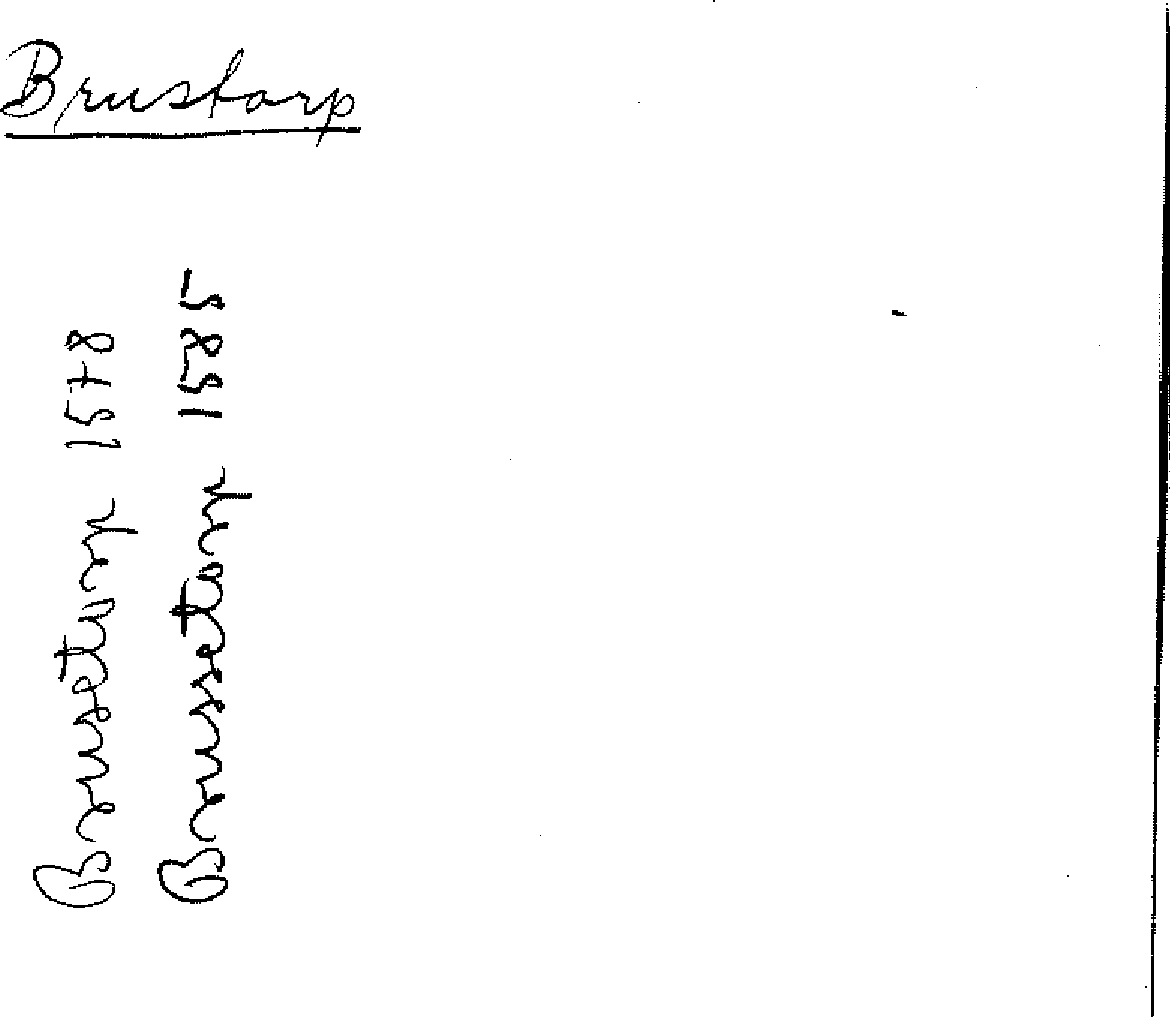 Brustorp
Brusetorp 1578
Brussetorp 1585